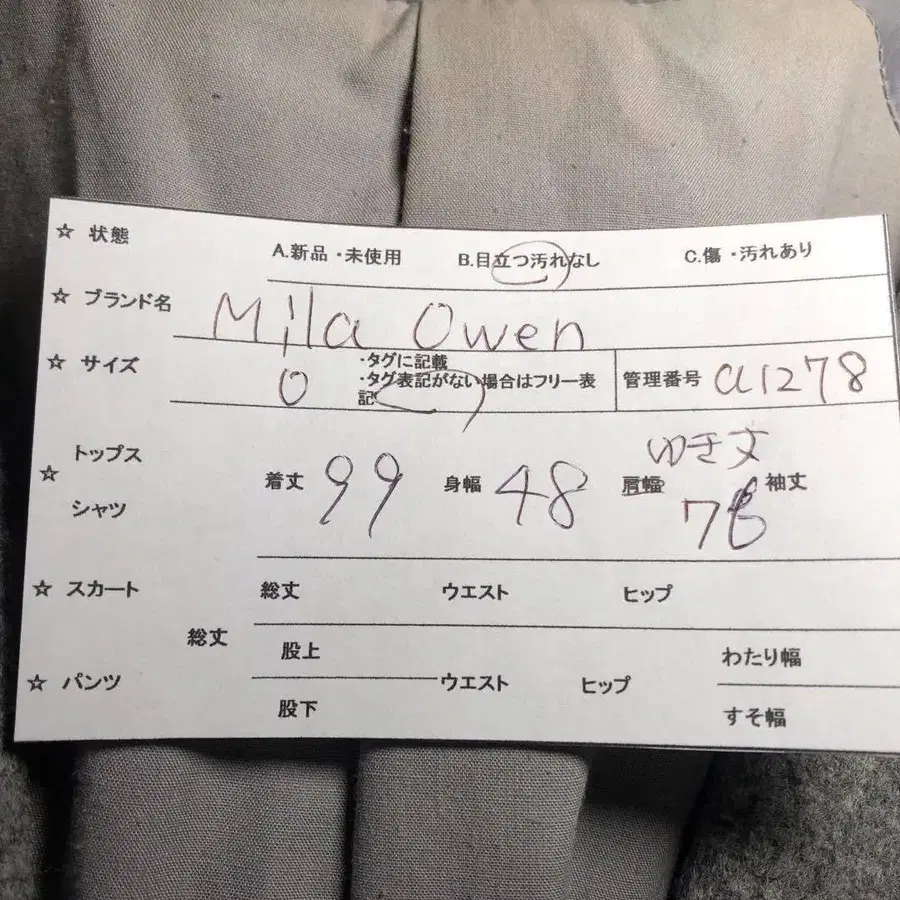 ☆ 状態 A.新品・未使用 B.目立つ汚れなし C.傷・汚れあり
☆ ブランド名 Mila Owen
☆ サイズ 0 ・タグに記載
・タグ表記がない場合はフリー表
記 管理番号 a1278
☆ トップス
シャツ
ゆき丈
着丈 99 身幅 48 肩幅 袖丈
☆ スカート 総丈 ウエスト ヒップ
☆ パンツ 総丈 股上 ウエスト ヒップ わたり幅
股下 すそ幅